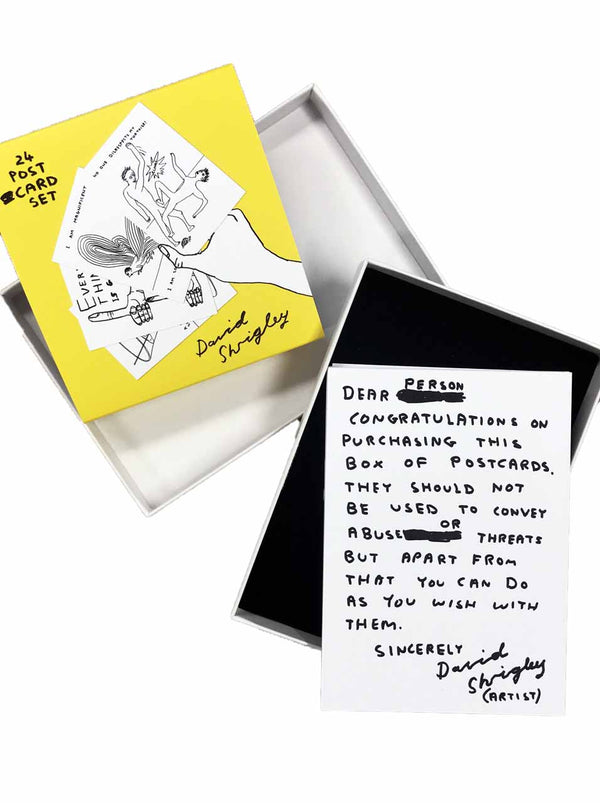 24
POST
CARD
SET
I AM MAGNIFICENT NO ONE DISRESPECTS MY
EVER
THIN
IS G
I AM
David
Shrigley
DEAR PERSON
CONGRATULATIONS ON
PURCHASING THIS
BOX OF POSTCARDS.
THEY SHOULD NOT
BE USED TO CONVEY
ABUSE OR THREATS
BUT APART FROM
THAT YOU CAN DO
AS YOU WISH WITH
THEM.
SINCERELY
David
Shrigley
(ARTIST)